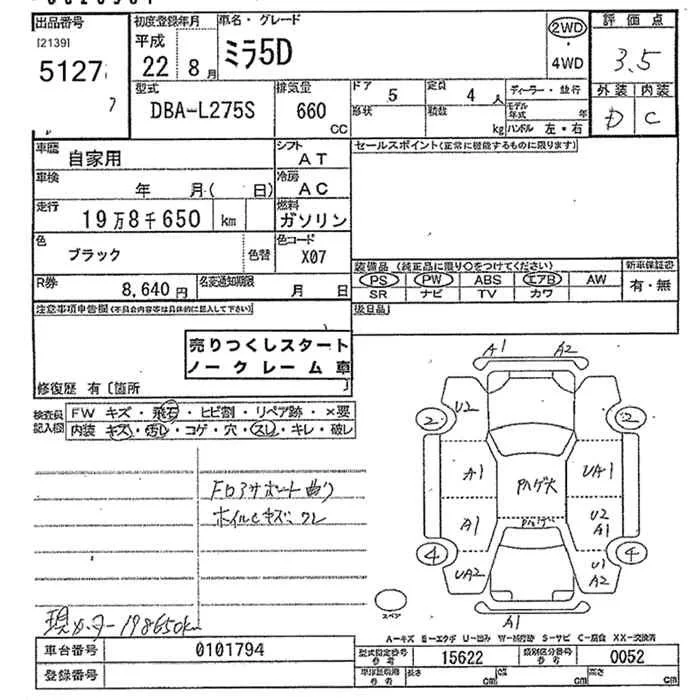 出品番号
[2139]
5127
初度登録年月
平成
22年8月
車名・グレード
ミラ5D
2WD
・
4WD
評価点
3.5
外装 内装
D C
型式
DBA-L275S
排気量
660
CC
ドア
5
定員
4人
形状
積数
kg
ディーラー・並行
モデル年式 年
ハンドル 左・右
車歴
自家用
シフト
AT
セールスポイント(正常に機能するものに限ります)
車検
年 月( 日)
冷房
AC
走行
19万8千650 km
燃料
ガソリン
色
ブラック
色替
色コード
X07
装備品 (純正品に限り○をつけてください)
新車保証書
PS PW ABS エアB AW
SR ナビ TV カワ
有・無
R券
8,640円
名変通知期限
月 日
注意事項申告欄(不具合内容等は具体的に記入して下さい)
扱日品
売りつくしスタート
ノークレーム車
修復歴 有〔箇所
検査員
記入欄
FW キズ・飛石・ヒビ割・リペア跡・×要
内装 キズ・汚レ・コゲ・穴・スレ・キレ・破レ
ホイルCキズ、ワレ
A1 A2
U2
2 2
A1 UA1
A1
U2
A1
4 4
UA2
U1
A2
A1
スペア
現メーター198650km
車台番号
0101794
登録番号
A-キズ E-エクボ U-凹み S-サビ C-腐食 XX-交換済
型式指定番号
参考
15622
類別区分番号
参考
0052
長さ cm
幅 cm
高さ cm